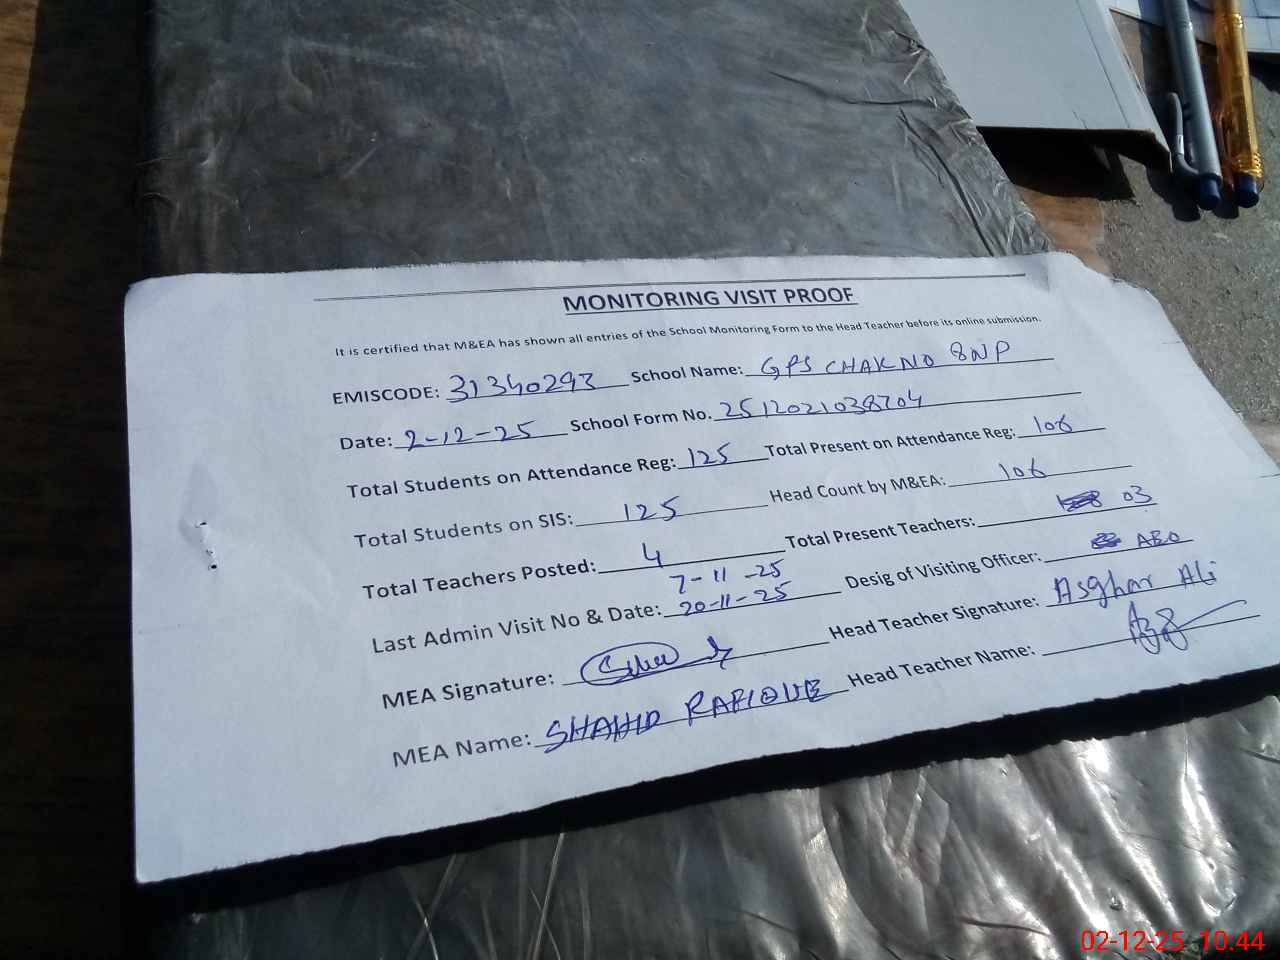 MONITORING VISIT PROOF
It is certified that M&EA has shown all entries of the School Monitoring Form to the Head Teacher before its online submission.
EMISCODE: 31340293 School Name: GPS CHAK NO 8NP
Date: 2-12-25 School Form No. 2512021038704
Total Students on Attendance Reg: 125 Total Present on Attendance Reg: 106
Total Students on SIS: 125 Head Count by M&EA: 106
Total Teachers Posted: 4 Total Present Teachers: 03
7-11-25
Last Admin Visit No & Date: 20-11-25 Desig of Visiting Officer: AEO
MEA Signature: Head Teacher Signature: Asghar Ali
MEA Name: SHAHID RAFIQUE Head Teacher Name:
02-12-25 10:44